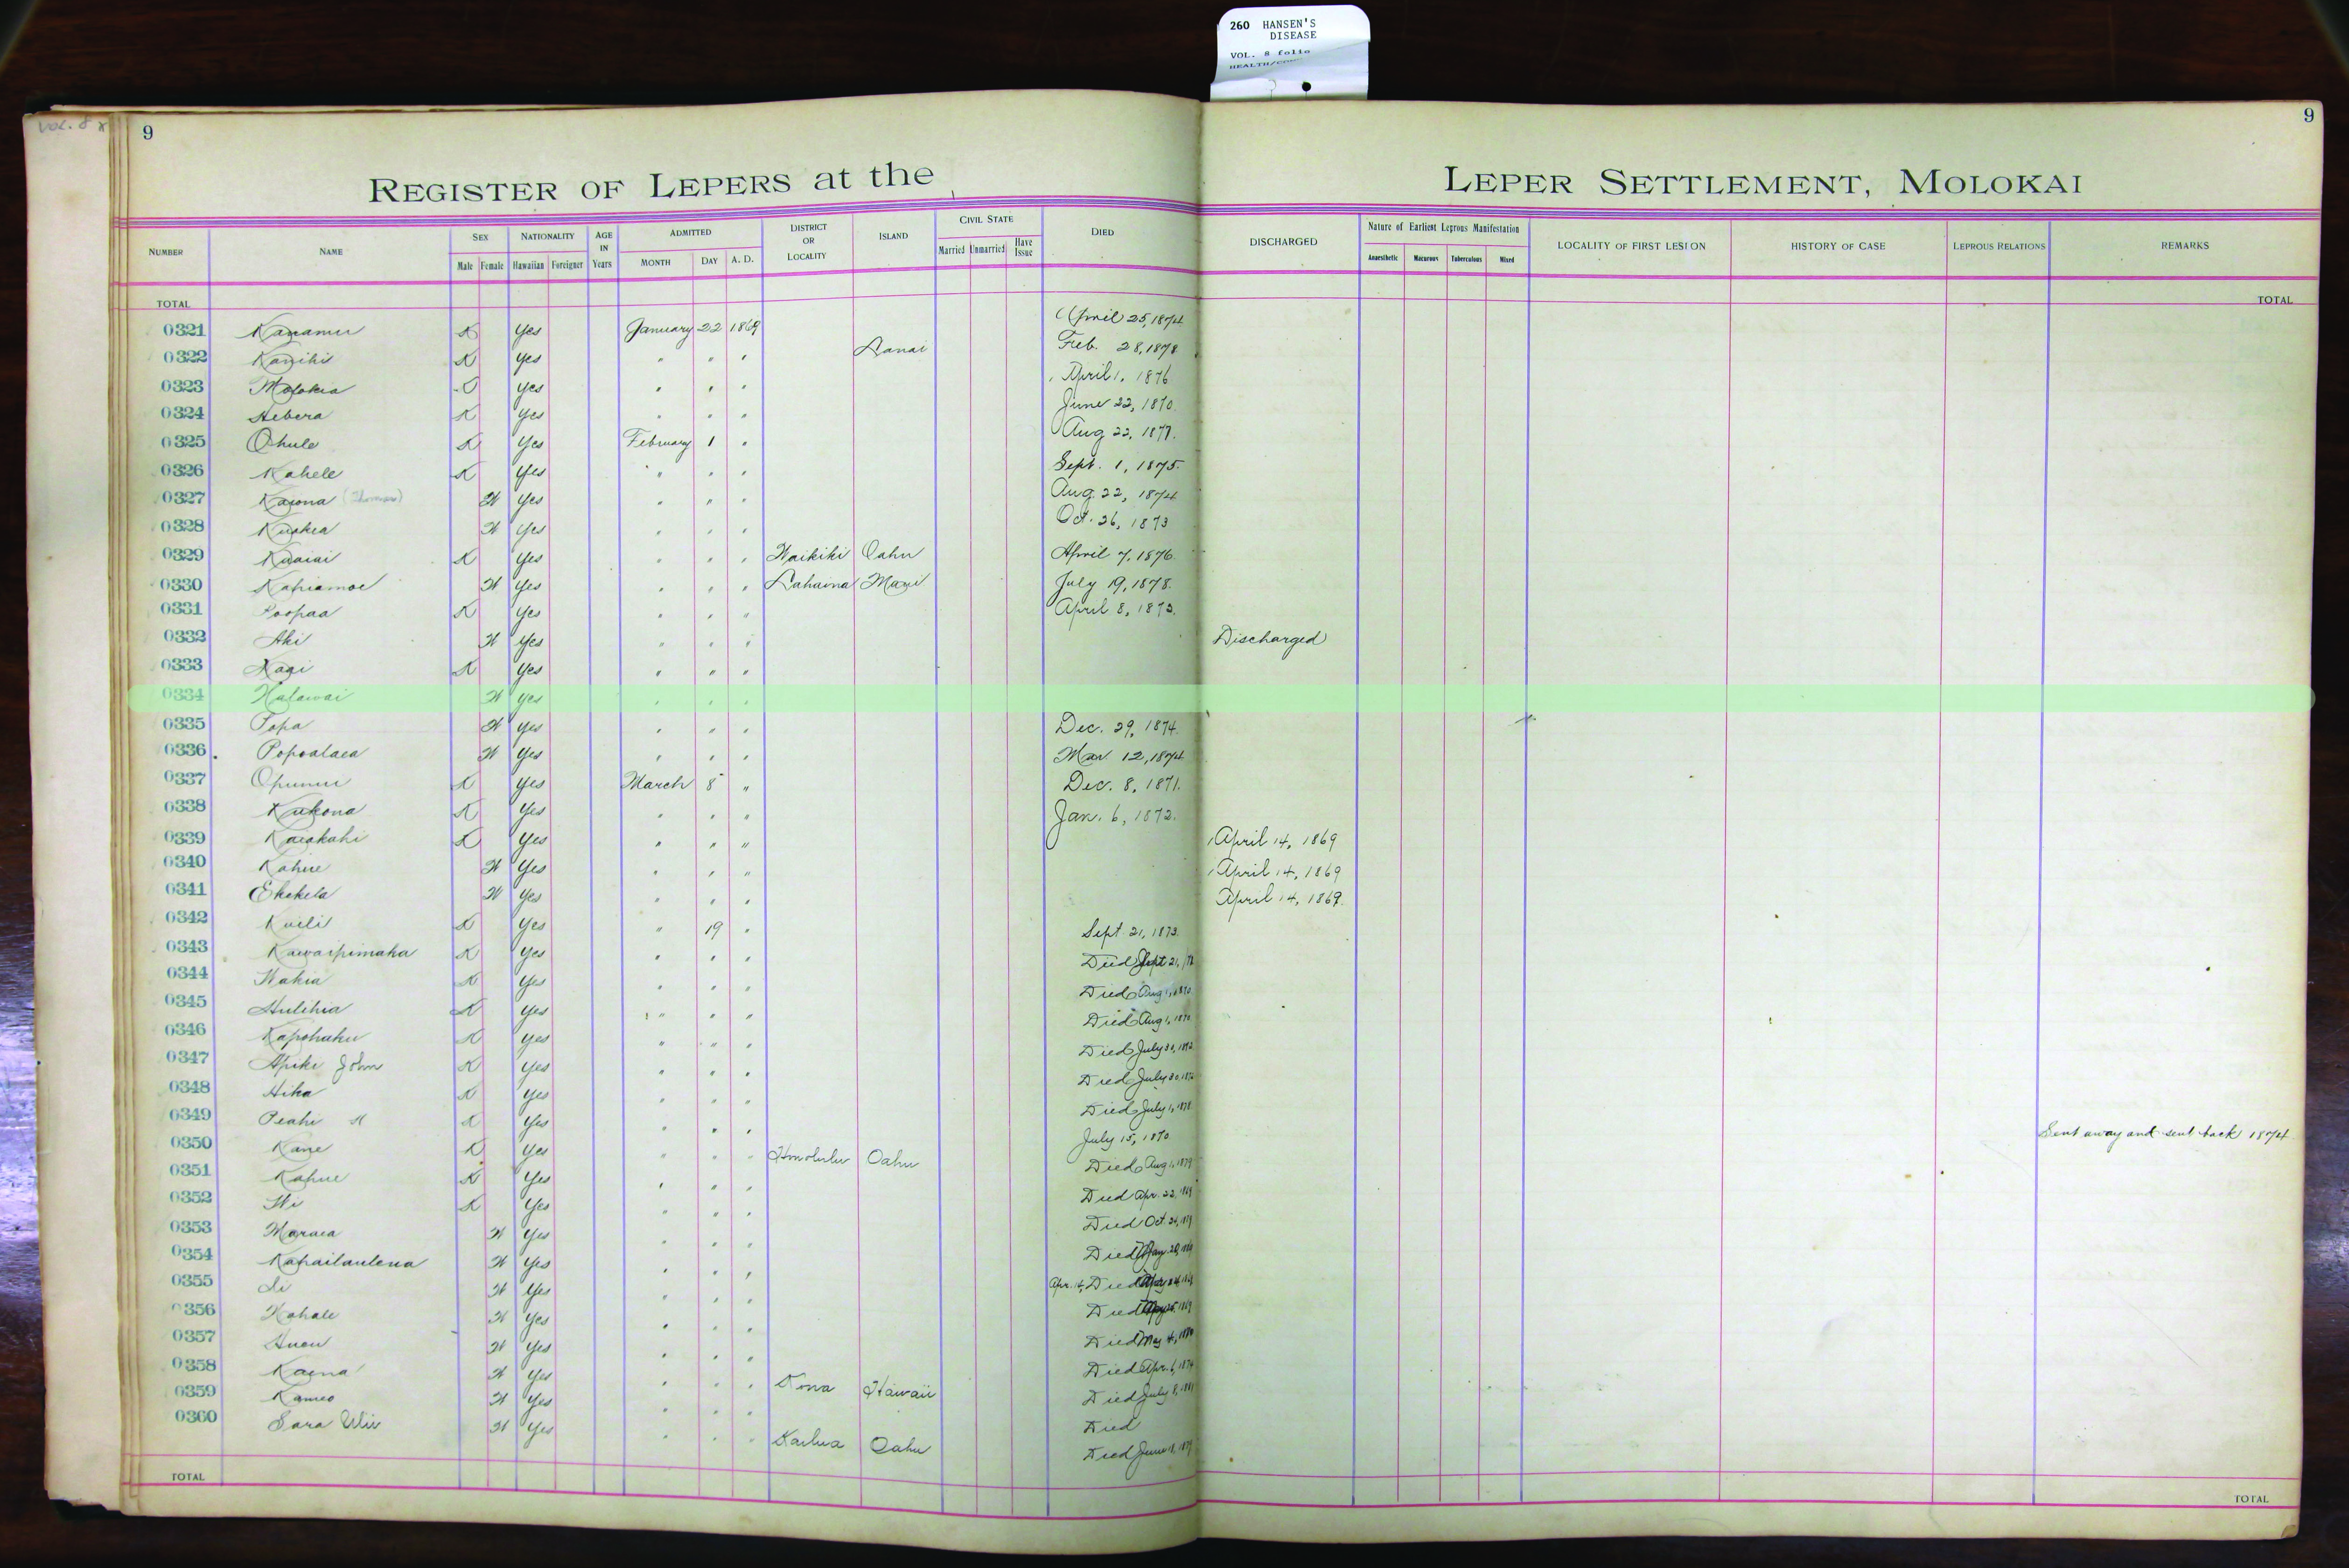 260 HANSEN'S
DISEASE
VOL. 8 folio
VOL. 8
9
9
REGISTER OF LEPERS at the LEPER SETTLEMENT, MOLOKAI
NUMBER NAME SEX NATIONALITY AGE IN Years ADMITTED DISTRICT OR LOCALITY ISLAND CIVIL STATE DIED DISCHARGED Nature of Earliest Leprous Manifestation LOCALITY OF FIRST LESION HISTORY OF CASE LEPROUS RELATIONS REMARKS
Male Female Hawaiian Foreigner MONTH DAY A. D. Married Unmarried Have Issue Anaesthetic Macurous Tuberculous Mixed
TOTAL TOTAL
0321 Kanamu K Yes January 22 1869 April 25, 1874
0322 Kanihi K Yes " " " Lanai Feb. 28, 1878
0323 Molokia Yes " " " April 1, 1876
0324 Hebera K Yes " " " June 22, 1870
0325 Ohule K Yes February 1 " Aug 22, 1877.
0326 Kahele K Yes " " " Sept. 1, 1875.
0327 Kaiona (Thomas) W Yes " " " Aug. 22, 1874
0328 Kuokea W Yes " " " Oct. 26, 1873
0329 Kuaiai K Yes " " " Waikiki Oahu April 7, 1876.
0330 Kapiamoe W Yes " " " Lahaina Maui July 19, 1878.
0331 Poopaa K Yes " " " April 8, 1873.
0332 Aki W Yes " " " Discharged
0333 Naai K Yes " " "
0334 Halawai W Yes " " "
0335 Popa W Yes " " " Dec. 29, 1874.
0336 Popoalaea W Yes " " " Mar 12, 1874
0337 Opunui K Yes March 8 " Dec. 8, 1871.
0338 Kukona K Yes " " " Jan. 6, 1872.
0339 Kaiakahi K Yes " " " April 14, 1869
0340 Kahue W Yes " " " April 14, 1869
0341 Ekekela W Yes " " " April 14, 1869.
0342 Kuili K Yes " 19 " Sept. 21, 1873.
0343 Kawaipimaka K Yes " " " Died Sept 21,
0344 Wakia K Yes " " " Died Aug 1, 1870
0345 Hulihia K Yes " " " Died Aug 1, 1870
0346 Kapohaku K Yes " " " Died July 30, 1872
0347 Apiki John K Yes " " " Died July 30, 1872
0348 Hika K Yes " " " Died July 1, 1878
0349 Peahi K Yes " " " July 15, 1870. Sent away and sent back 1874
0350 Kane K Yes " " " Honolulu Oahu Died Aug 1, 1879
0351 Kahue K Yes " " " Died Apr. 22, 1869
0352 Wi K Yes " " " Died Oct. 24, 1869
0353 Maraea W Yes " " " Died May 20, 1869
0354 Kahailaulena W Yes " " " Apr. 14, Died
0355 Li W Yes " " " Died
0356 Kahale W Yes " " " Died May 4, 1880
0357 Auou W Yes " " " Died Apr. 6, 1874
0358 Kaena W Yes " " " Kona Hawaii Died July 8, 1881
0359 Kameo W Yes " " " Died
0360 Sara Uliu W Yes " " " Kailua Oahu Died June 18, 1879
TOTAL TOTAL